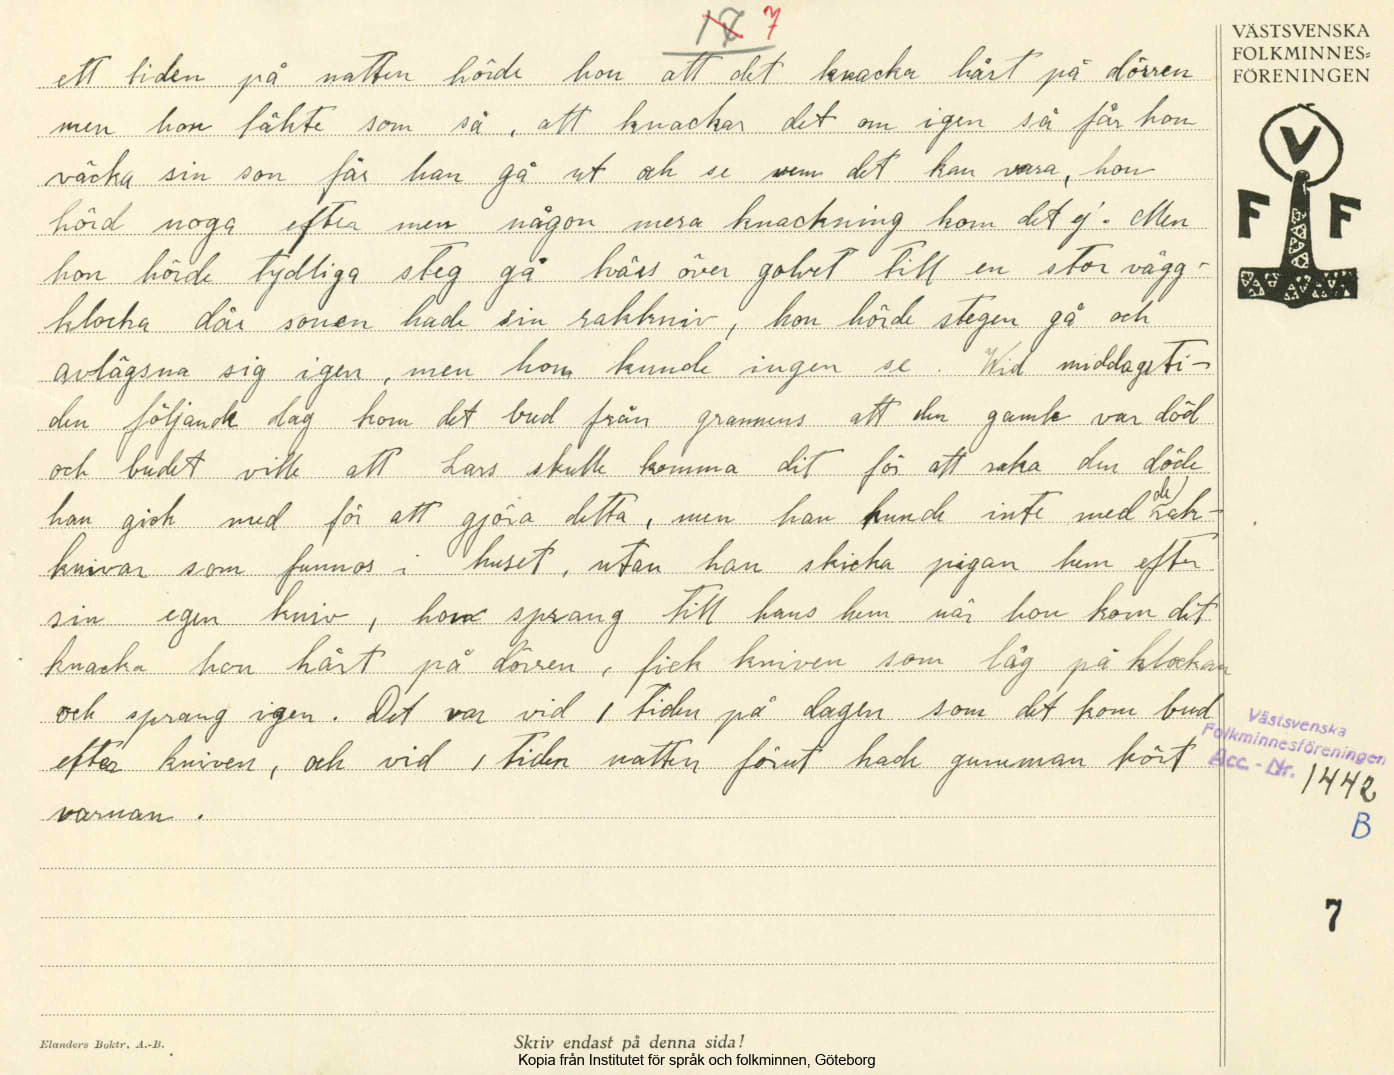 17 7
ett tiden på natten hörde hon att det knacka hårt på dörren
men hon täkte som så, att knackar det om igen så får hon
väcka sin son får han gå ut och se vem det kan vara, hon
hörd noga efter men någon mera knackning kom det ej. Men
hon hörde tydliga steg gå tvärs över golvet till en stor vägg-
klocka där sonen hade sin rakkniv, hon hörde stegen gå och
avlägsna sig igen, men hon kunde ingen se. Vid middagsti-
den följande dag kom det bud från grannens att den gamle var död
och budet ville att Lars skulle komma dit för att raka den döde
han gick med för att gjöra detta, men han kunde inte med de rak-
knivar som funnos i huset, utan han skicka pigan hem efter
sin egen kniv, hon sprang till hans hem när hon kom dit
knacka hon hårt på dörren, fick kniven som låg på klockan
och sprang igen. Det var vid 1 tiden på dagen som det kom bud
efter kniven, och vid 1 tiden natten förut hade gumman hört
varnan.
VÄSTSVENSKA
FOLKMINNES=
FÖRENINGEN
V
F F
Västsvenska
Folkminnesföreningen
Acc. - Nr. 1442
B
7
Elanders Boktr. A.-B.
Skriv endast på denna sida!
Kopia från Institutet för språk och folkminnen, Göteborg